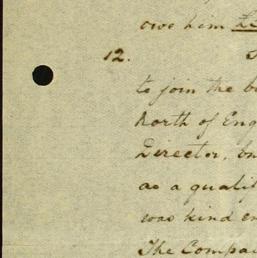 owe him
12.
to join the
North of Eng
Director,
as a qualif
was kind en
The Compa